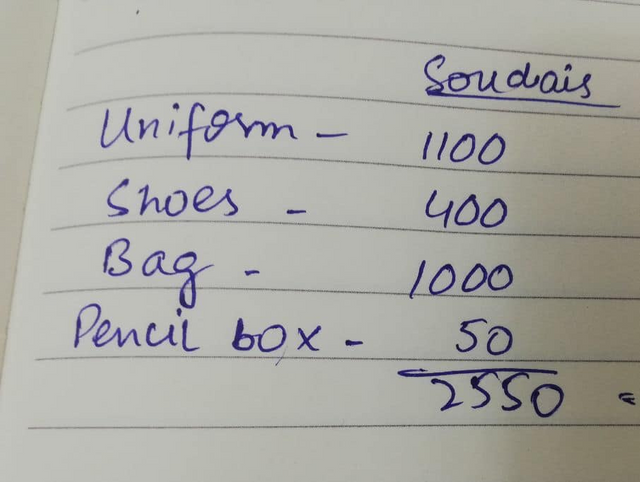 Soudais
Uniform - 1100
Shoes - 400
Bag - 1000
Pencil box - 50
2550 =